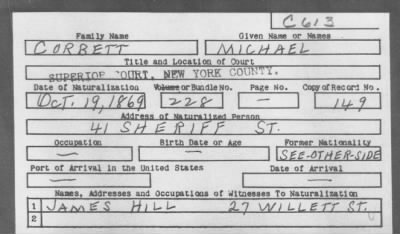 C613
Family Name Given Name or Names
CORBETT MICHAEL
Title and Location of Court
SUPERIOR COURT, NEW YORK COUNTY.
Date of Naturalization Volume or Bundle No. Page No. Copy of Record No.
Oct. 19, 1869 228 — 149
Address of Naturalized Person
41 SHERIFF ST.
Occupation Birth Date or Age Former Nationality
— — SEE-OTHER-SIDE
Port of Arrival in the United States Date of Arrival
— —
Names, Addresses and Occupations of Witnesses To Naturalization
1 JAMES HILL 27 WILLETT ST.
2